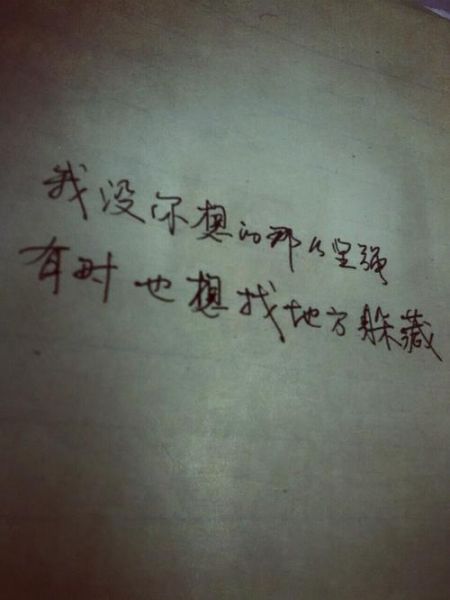 我没你想的那么坚强
有时也想找地方躲藏